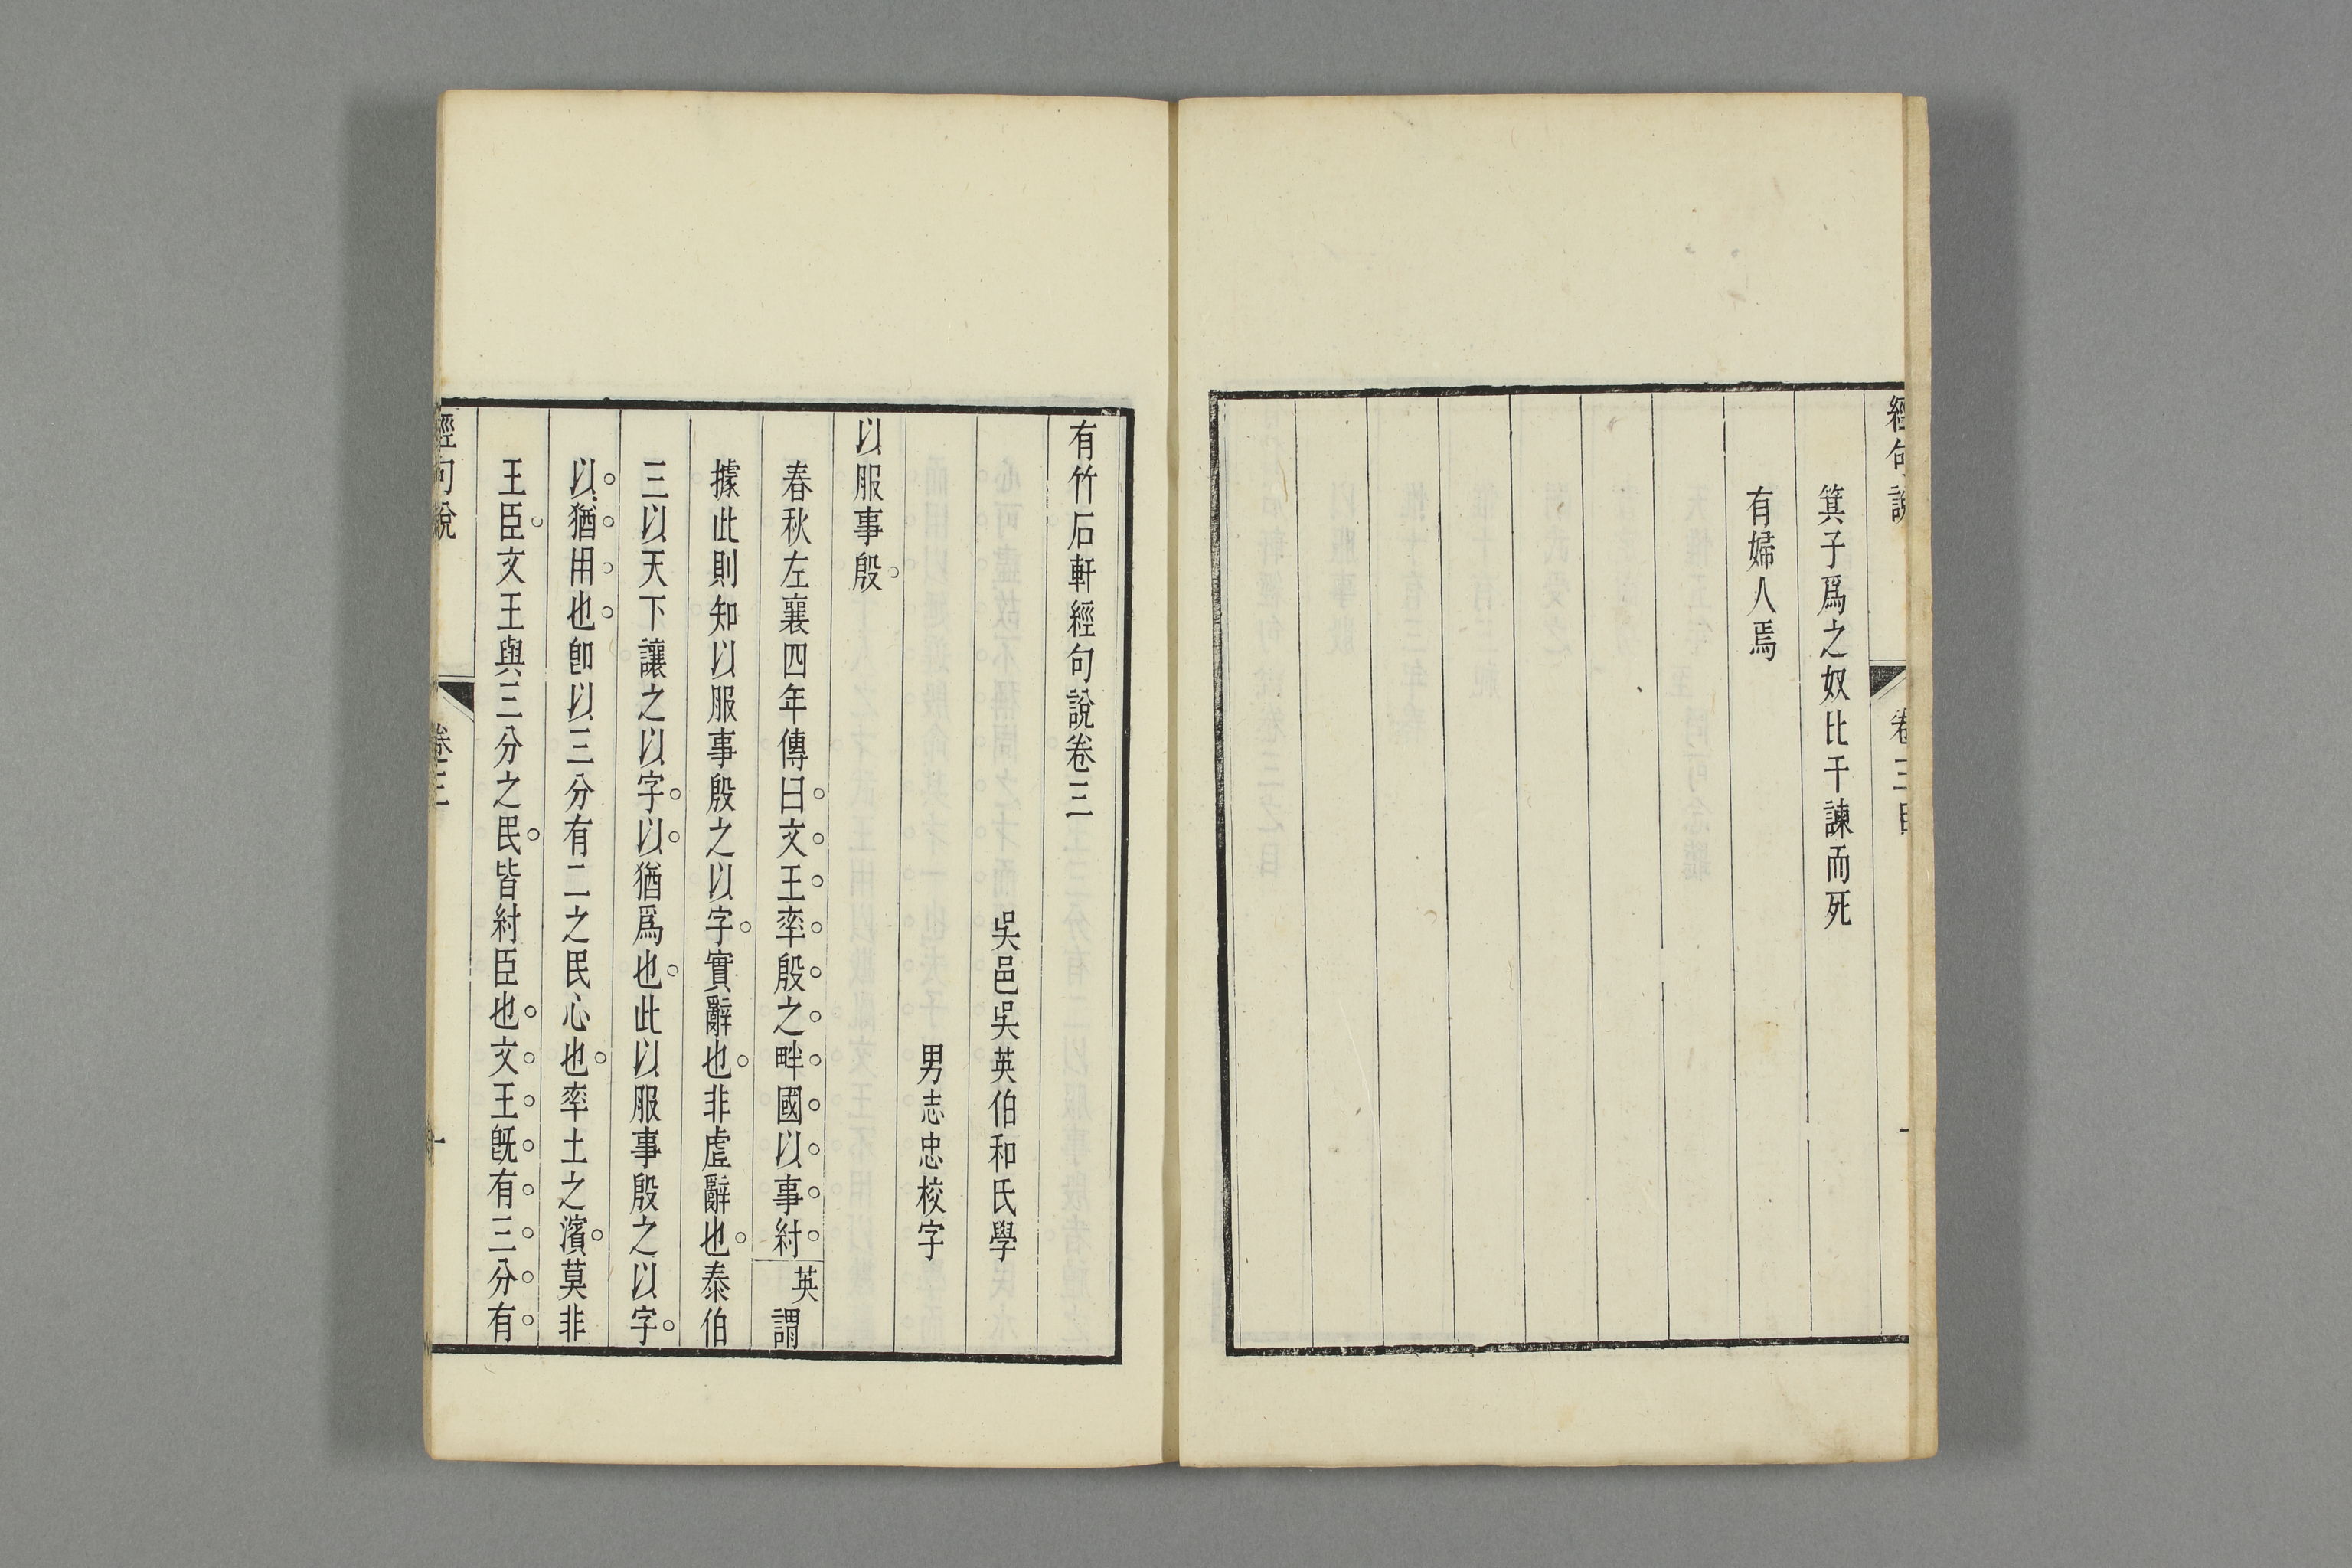 經句說
卷三目
一
箕子爲之奴比干諫而死
有婦人焉
有竹石軒經句說卷三
吳邑吳英伯和氏學
男志忠校字
以服事殷
春秋左襄四年傳曰文王率殷之畔國以事紂英謂
據此則知以服事殷之以字實辭也非虛辭也泰伯
三以天下讓之以字以猶爲也此以服事殷之以字
以猶用也卽以三分有二之民心也率土之濱莫非
王臣文王與三分之民皆紂臣也文王旣有三分有
經句說
卷三
一